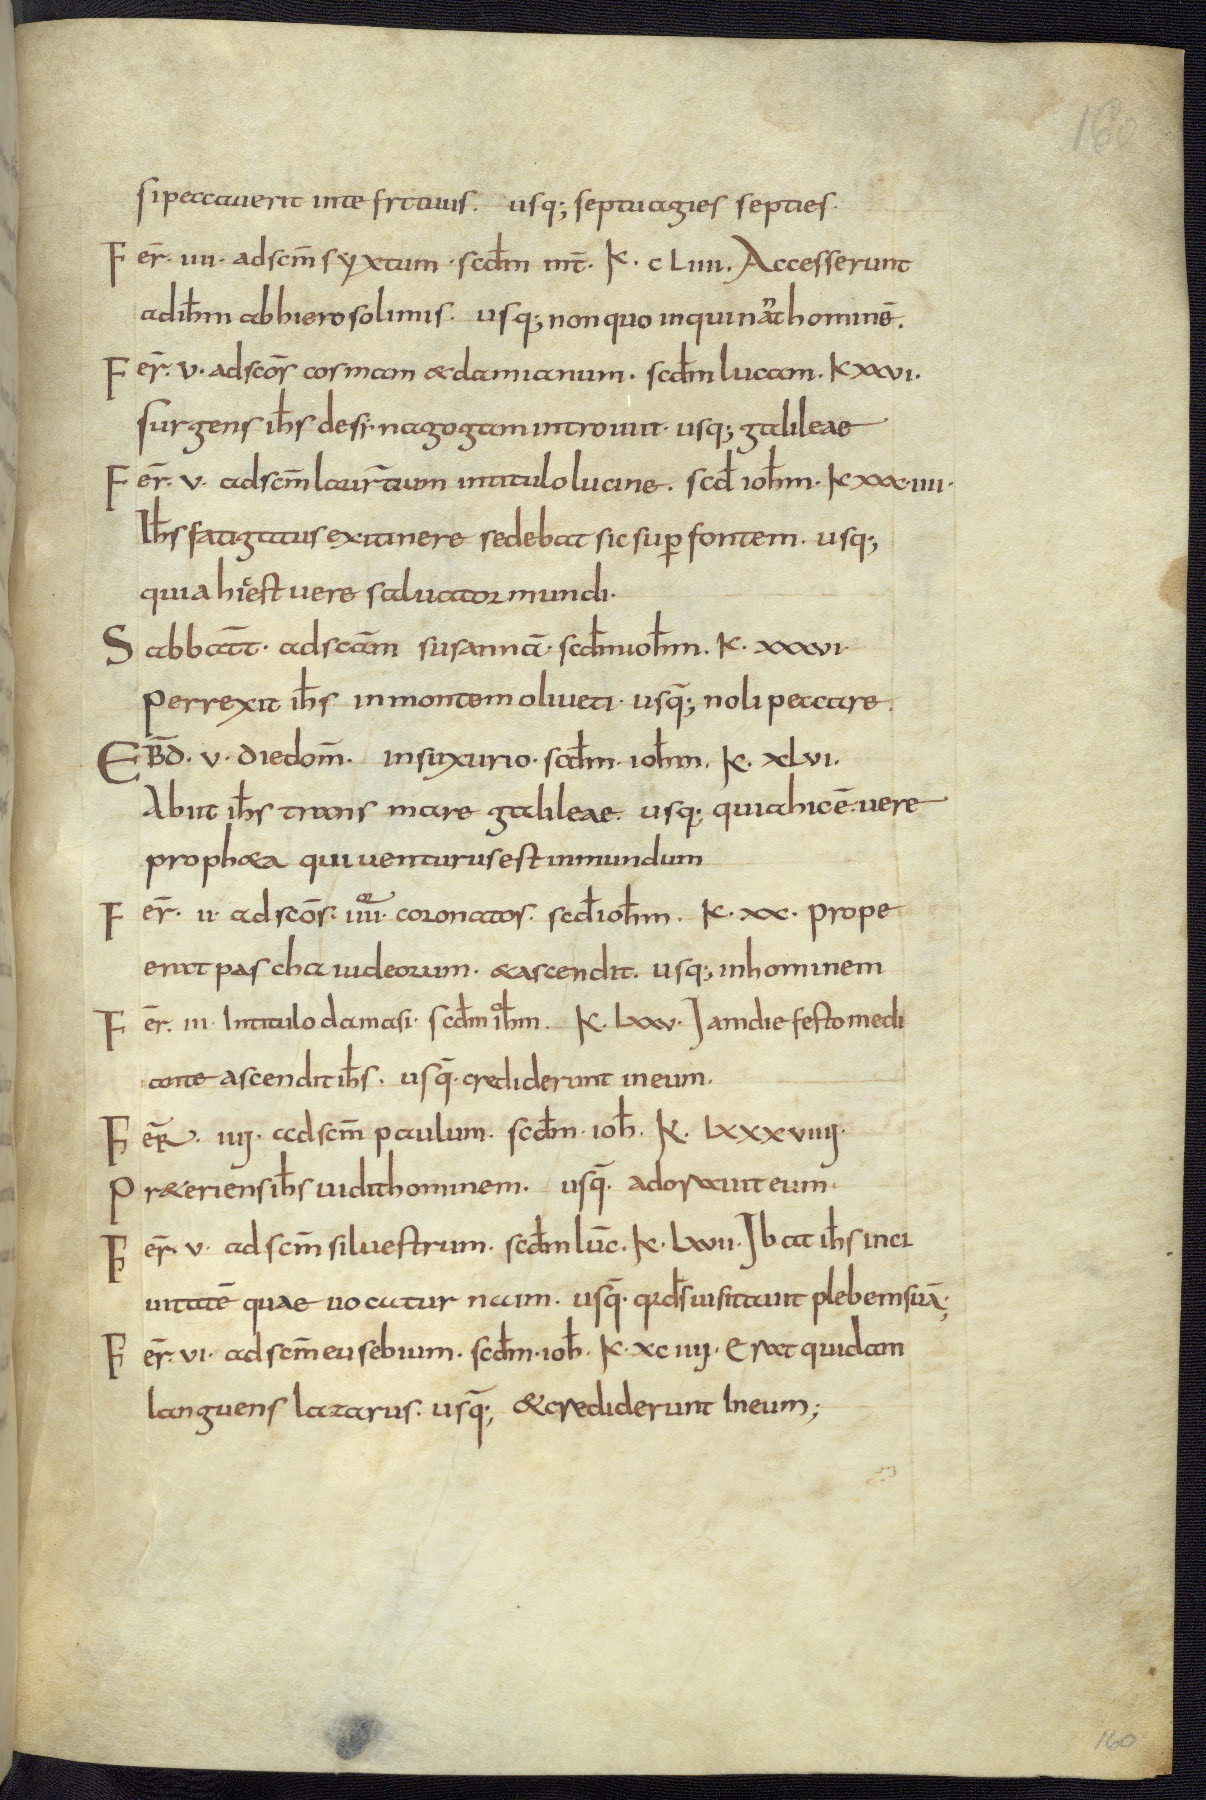 160
si peccaverit inte fr̄ tuus. usq; septuagies septies.
Fer̄. iiii. ad sc̄m syxtum. scd̄m mt̄. K. cLiiii. Accesserunt
ad ih̄m ab hierosolimis. usq; non quo inquinat hominē.
Fer̄. v. ad scōs cosmam & damianum. scd̄m lucam. K xxvi.
surgens ih̄s de synagogam introiuit. usq; galileae
Fer̄. v. ad sc̄m laur̄tium intitulo lucine. scd̄ ioh̄m. K xxx. iiii.
Ih̄s fatigatus exitinere sedebat sic sup̄ fontem. usq;
quia hic est vere salvator mundi.
Sabbat̄. ad scām susannā. scd̄m ioh̄m. K. xxxvi.
Perrexit ih̄s in montem oliveti. usq̄; noli peccare.
EB̄D. v. die dom̄. in suxurio. scd̄m. ioh̄m. K. xLvi.
Abiit ih̄s trans mare galileae. usq; quia hic ē vere
proph&a qui venturus est in mundum
Fer̄. ii. ad scōs. iiii or. coronatos. scd̄ ioh̄m. K. xx. prope
erat pascha iudeorum. & ascendit. usq; in hominem
Fer̄. iii. Intitulo damasi. scd̄m ioh̄m. K. Lxxv. Iam die festo medi
ante ascendit ih̄s. usq̄. crediderunt in eum.
Fer̄. iiij. ad sc̄m paulum. scd̄m. ioh̄. K. Lxxxviiij.
Pr&eriens ih̄s vidit hominem. usq̄. adoravit eum.
Fer̄. v. ad sc̄m silvestrum. scd̄m lūc. K. Lxvii. Ibat ih̄s in ci
vitatē quae vocatur naim. usq̄. q d̄s visitavit plebem suā;
Fer̄. vi. ad sc̄m eusebium. scd̄m. ioh̄. K. xciiij. Erat quidam
languens lazarus. usq̄; & crediderunt In eum;
160